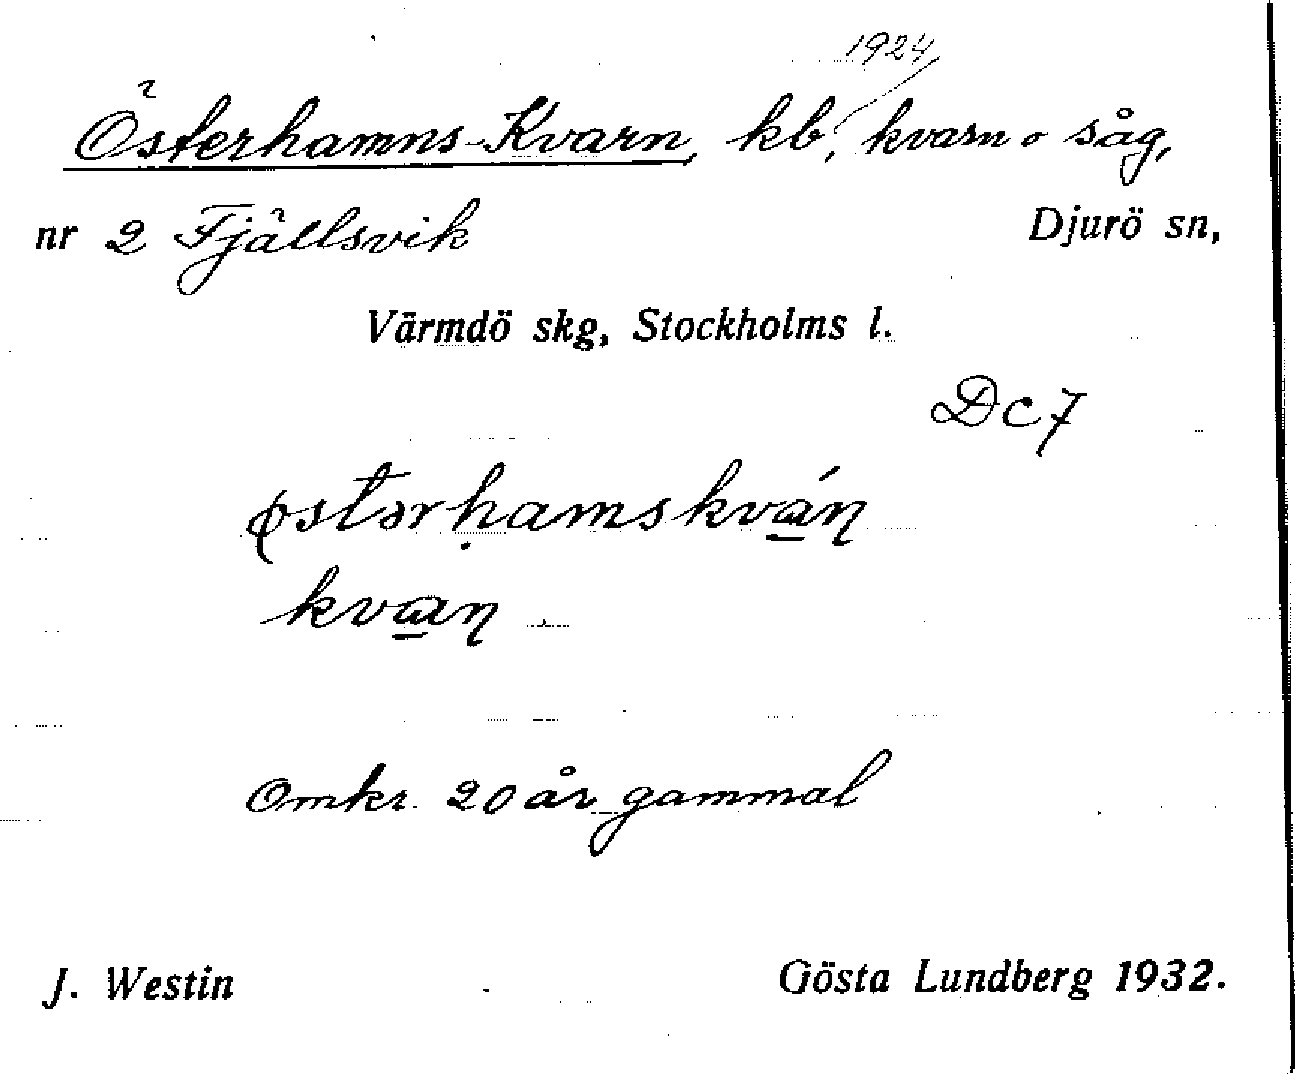 1924
Österhamns-Kvarn, kb, kvarn o såg,
nr 2 Fjällsvik Djurö sn,
Värmdö skg, Stockholms l.
Dc7
østərḥamskvá̱ɳ
kva̱ɳ
Omkr. 20 år gammal
J. Westin Gösta Lundberg 1932.